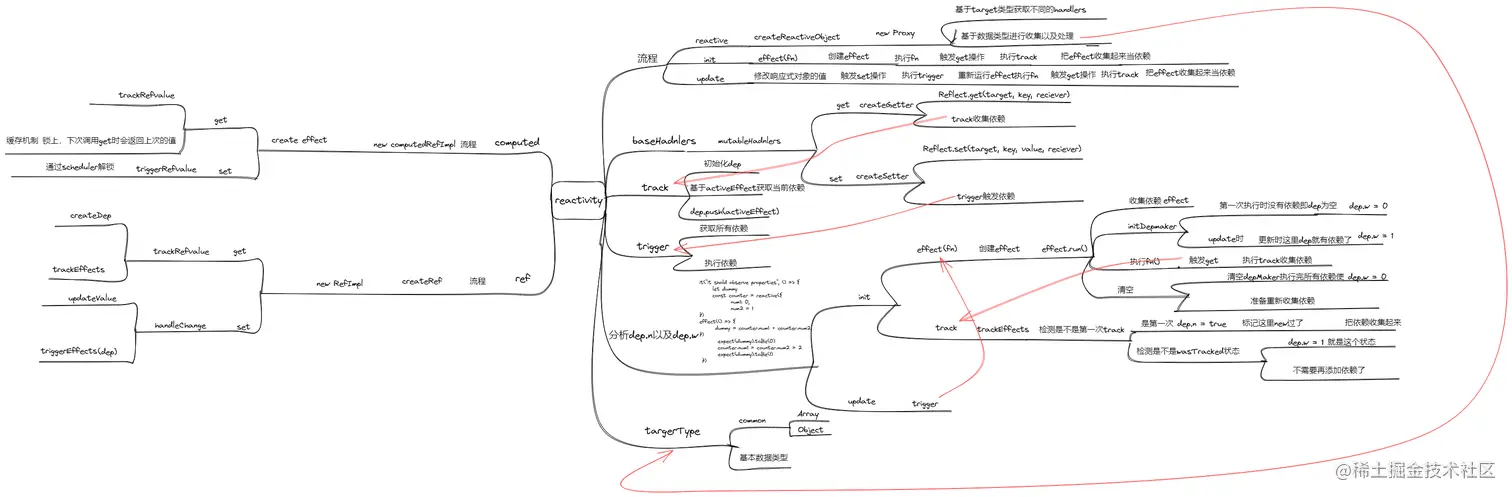 reactivity
computed
流程
new computedRefImpl
create effect
get
trackRefvalue
缓存机制 锁上，下次调用get时会返回上次的值
set
triggerRefvalue
通过scheduler解锁
ref
流程
createRef
new RefImpl
get
trackRefvalue
createDep
trackEffects
set
handleChange
updateValue
triggerEffects(dep)
流程
reactive
createReactiveObject
new Proxy
基于target类型获取不同的handlers
基于数据类型进行收集以及处理
init
effect(fn)
创建effect
执行fn
触发get操作
执行track
把effect收集起来当依赖
update
修改响应式对象的值
触发set操作
执行trigger
重新运行effect执行fn
触发get操作
执行track
把effect收集起来当依赖
baseHadnlers
mutableHadnlers
get
createGetter
Reflect.get(target, key, reciever)
track收集依赖
set
createSetter
Reflect.set(target, key, value, reciever)
trigger触发依赖
track
初始化dep
基于activeEffect获取当前依赖
dep.push(activeEffect)
trigger
获取所有依赖
执行依赖
分析dep.n以及dep.w
it("it should observe properties", () => {
let dummy
const counter = reactive({
num1: 0,
num2 = 1
})
effect(() => {
dummy = counter.num1 + counter.num2
})
expect(dummy).toBe(0)
counter.num1 = counter.num2 = 2
expect(dummy).toBe(1)
})
init
effect(fn)
创建effect
effect.run()
收集依赖 effect
initDepmaker
第一次执行时没有依赖即dep为空
dep.w = 0
update时
更新时这里dep就有依赖了
dep.w = 1
执行fn()
触发get
执行track收集依赖
清空
清空depMaker执行完所有依赖使 dep.w = 0
准备重新收集依赖
track
trackEffects
检测是不是第一次track
是第一次 dep.n = true
标记这里new过了
把依赖收集起来
检测是不是wasTracked状态
dep.w = 1 就是这个状态
不需要再添加依赖了
update
trigger
targerType
common
Array
Object
基本数据类型
@稀土掘金技术社区